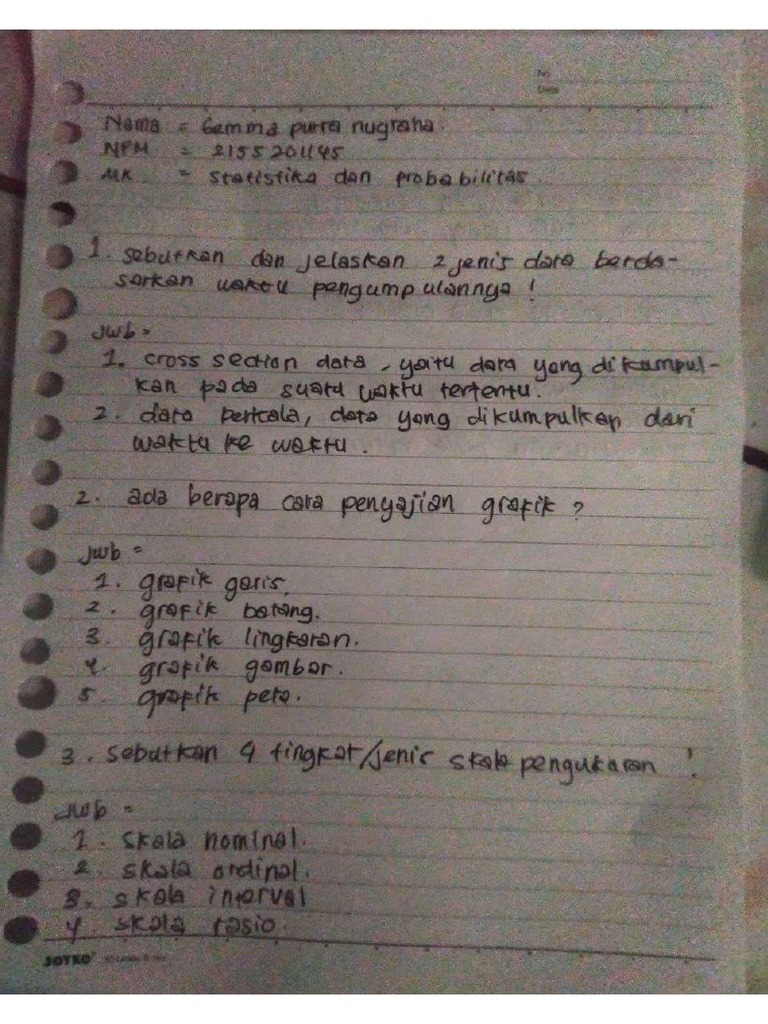 No
Date
Nama = Gemma putra nugraha.
NPM = 2155201145
MK = Statistika dan probabilitas
1. sebutkan dan jelaskan 2 jenis data berda-
sarkan waktu pengumpulannya !
Jwb =
1. cross section data, yaitu data yang dikumpul-
kan pada suatu waktu tertentu.
2. data berkala, data yang dikumpulkan dari
waktu ke waktu.
2. ada berapa cara penyajian grafik ?
Jwb =
1. grafik garis.
2. grafik batang.
3. grafik lingkaran.
4. grafik gambar.
5. grafik peta.
3. sebutkan 4 tingkat/jenis skala pengukuran !
Jwb =
1. skala nominal.
2. skala ordinal.
3. skala interval
4. skala rasio.
JOYKO